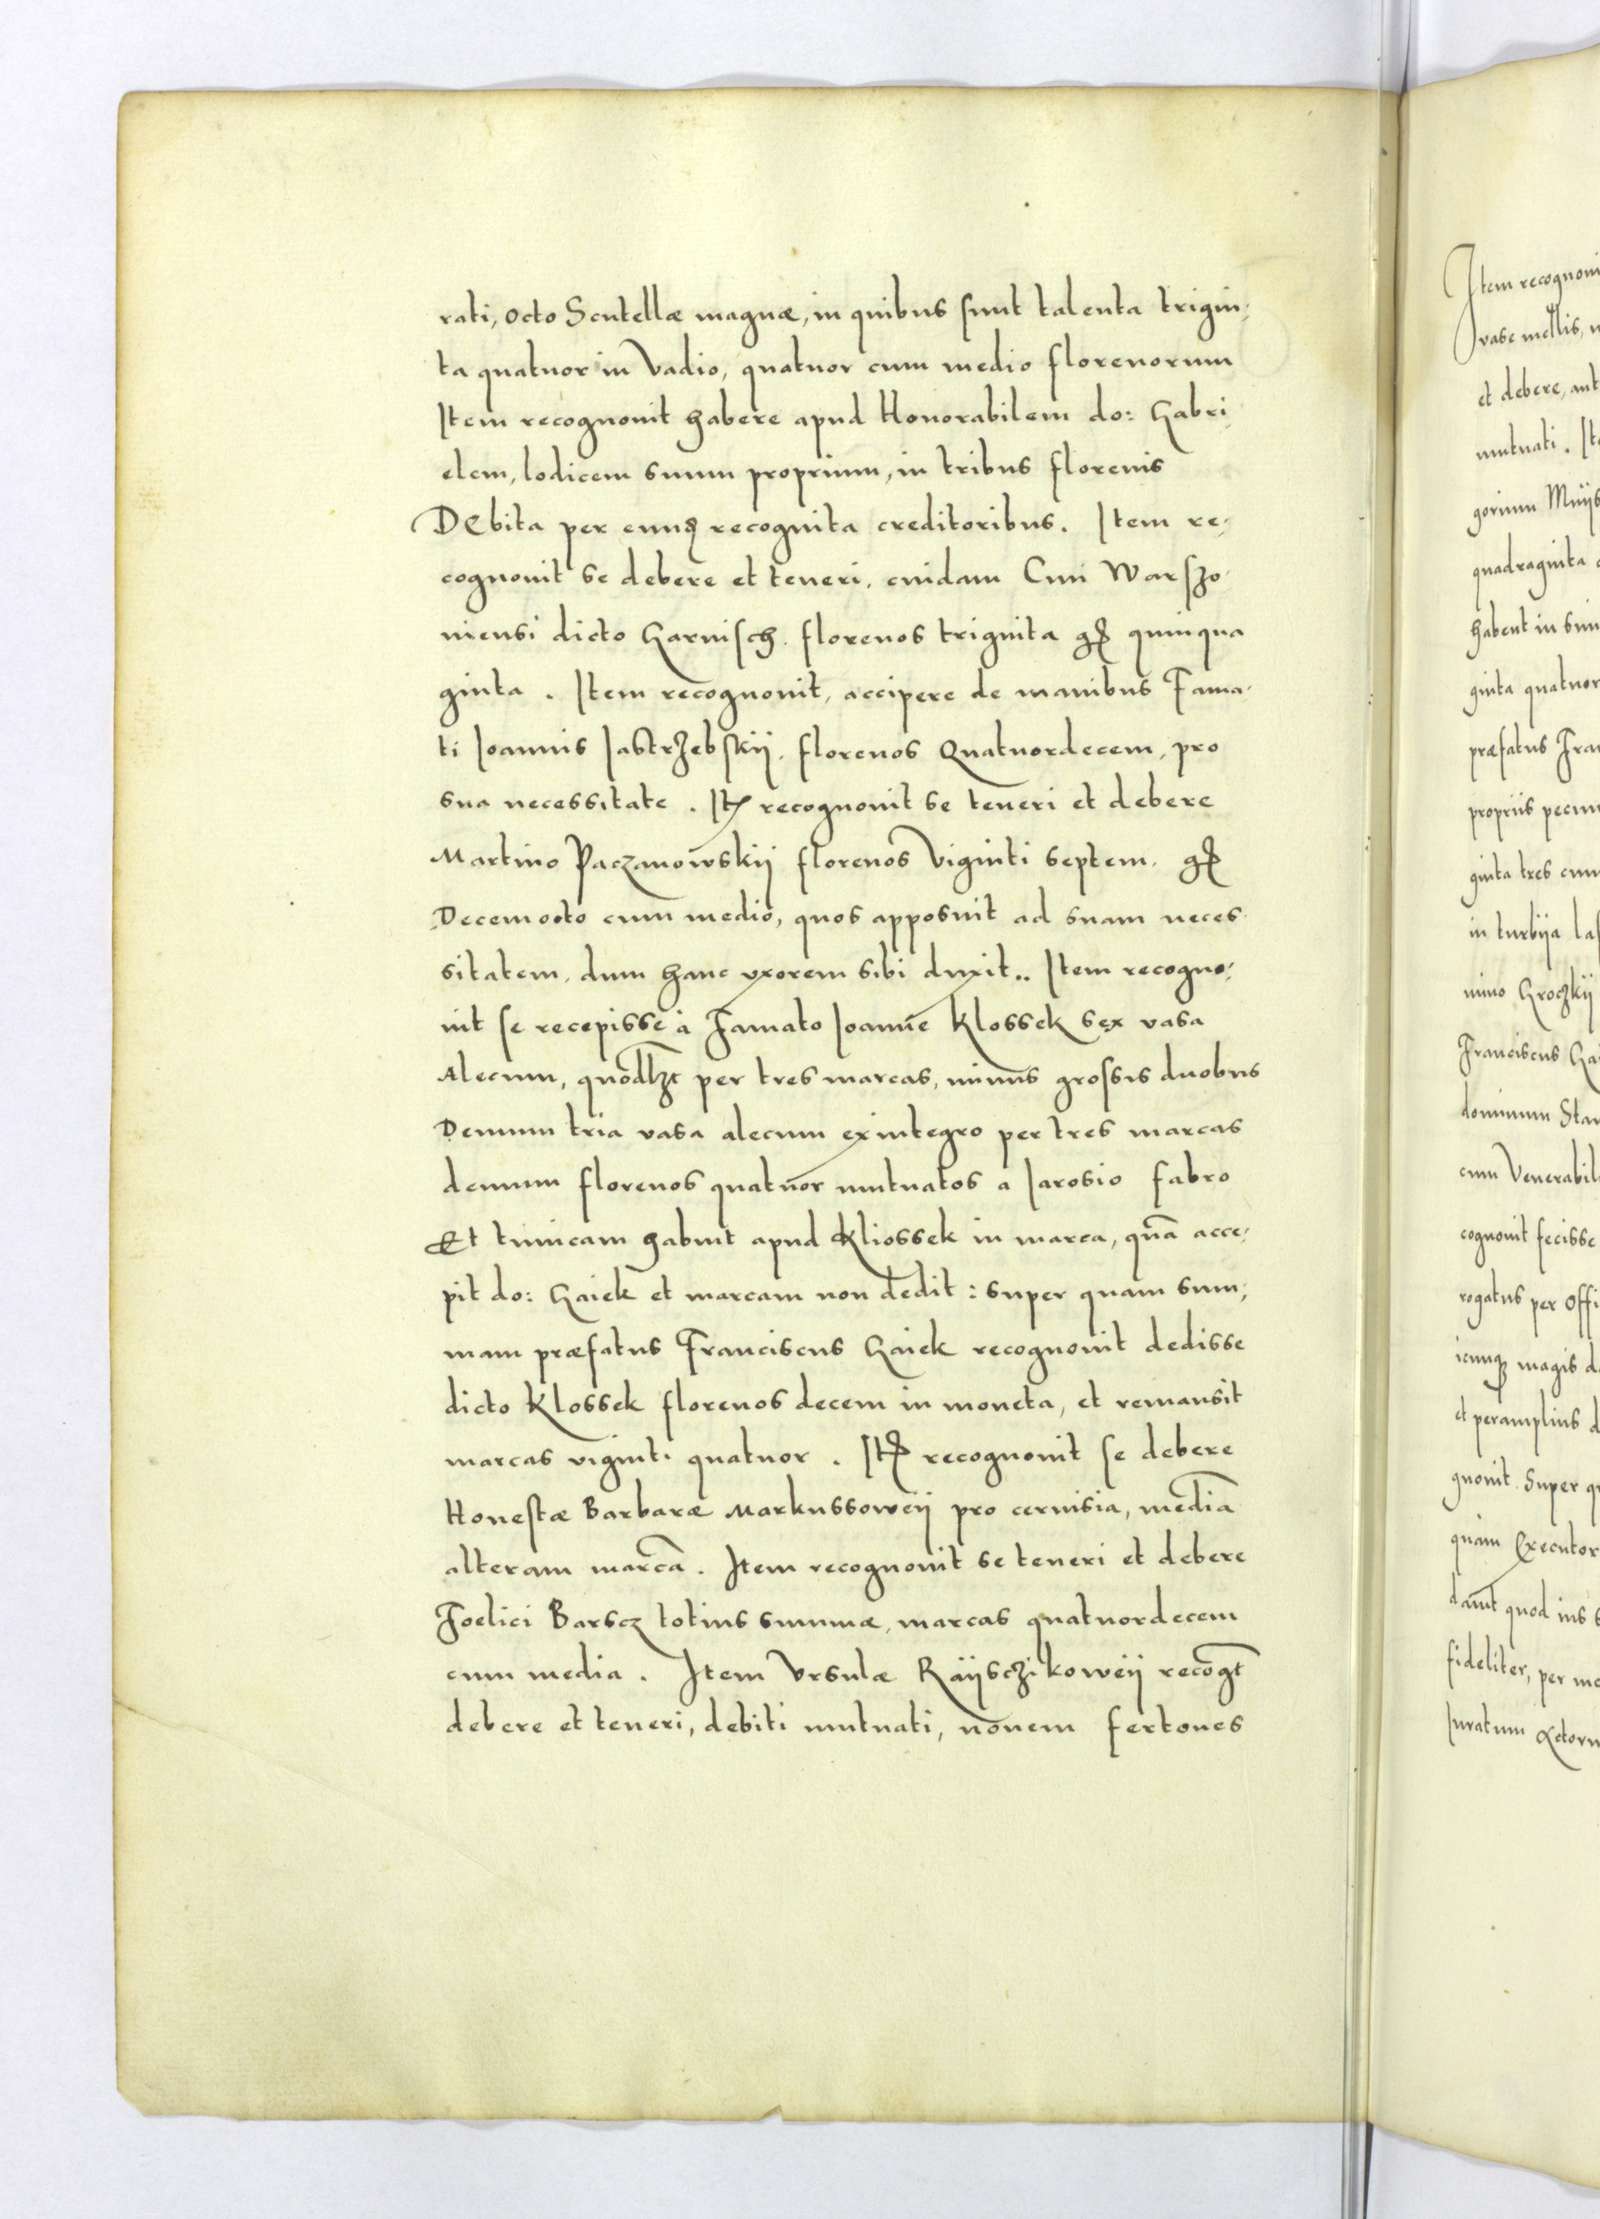 rati, octo Scutellæ magnæ, in quibus sunt talenta trigin,
ta quatuor in Vadio, quatuor cum medio florenorum
Item recognouit habere apud Honorabilem do: Gabri
elem, lodicem suum proprium, in tribus florenis
DEbita per eundem recognita creditoribus. Item re,
cognouit se debere et teneri, cuidam Ciui Warszo
uiensi dicto Harnisch. florenos triginta gr quinqua
ginta. Item recognouit, accipere de manibus Fama,
ti Joannis Jastrzebskij, florenos Quatuordecem, pro
sua necessitate. Itē recognouit se teneri et debere
Martino Paczanowskij florenos Viginti septem, gr
Decemocto cum medio, quos apposuit ad suam neces
sitatem, dum hanc vxorem sibi duxit.. Item recogno,
uit se recepisse à Famato Joanne Klossek sex vasa
Alecum, quodlzt per tres marcas, minus grossis duobus
Demum tria vasa alecum exintegro per tres marcas
demum florenos quatuor mutuatos a Jarosio fabro
Et tunicam habuit apud Kliossek in marca, quā acce,
pit do: Gaiek et marcam non dedit: super quam sum,
mam præfatus Franciscus Gaiek recognouit dedisse
dicto Klossek florenos decem in moneta, et remansit
marcas viginti quatuor. Itē recognouit se debere
Honestæ Barbaræ Markussoweij pro ceruisia, mediā
alteram marcā. Item recognouit se teneri et debere
Foelici Barscz totius summæ, marcas quatuordecem
cum media. Item Vrsulæ Raijsczikoweij recogt
debere et teneri, debiti mutuati, nouem fertones
Item recognoui
vase mellis,
et debere, aut
mutuati. It
gorium
quadraginta
habent in
ginta quatuor
præfatus Fran
propriis pecun
ginta tres cum
in
Groczkij
Franciscus Ga
dominum Stan
cum Venerabil
cognouit fecisse
rogatus per Offi
magis d
et peramplius d
gnouit. Super q
quam Executor
quod ius
fideliter, per
Juratum Actoru